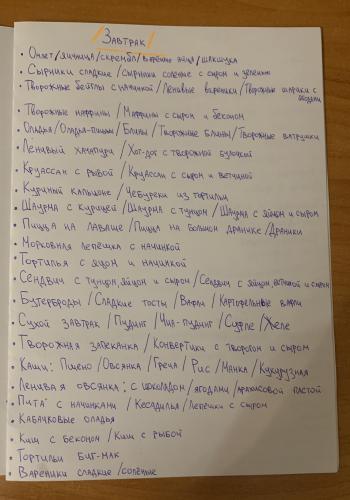 /ЗАВТРАК/
• Омлет/яичница/скрембл/варёные яйца/шакшука
• Сырники сладкие/Сырники солёные с сыром и зеленью
• Творожные бейглы с начинкой/Ленивые вареники/Творожные шарики с
• Творожные маффины/Маффины с сыром и беконом
• Оладья/Оладья-пицца/Блины/Творожные блины/Творожные ватрушки
• Ленивый хачапури/Хот-дог с творожной булочкой
• Круассан с рыбой/Круассан с сыром и ветчиной
• Куриный кальцоне/Чебуреки из тортильи
• Шаурма с курицей/Шаурма с тунцом/Шаурма с яйцом и сыром
• Пицца на лаваше/Пицца на большом дранике/Драники
• Морковная лепёшка с начинкой
• Тортилья с яйцом и начинкой
• Сендвич с тунцом, яйцом и сыром/Сендвич с яйцом, ветчиной и сыром
• Бутерброды/Сладкие тосты/Вафли/Картофельные вафли
• Сухой завтрак/Пудинг/Чиа-пудинг/Суфле/Желе
• Творожная запеканка/Конвертики с творогом и сыром
• Каши: Пшено/Овсянка/Греча/Рис/Манка/Кукурузная
• Ленивая овсянка: с шоколадом/ягодами/арахисовой пастой
• Пита с начинками/Кесадилья/Лепёшки с сыром
• Кабачковые оладья
• Киш с беконом/Киш с рыбой
• Тортилья биг-мак
• Вареники сладкие/солёные